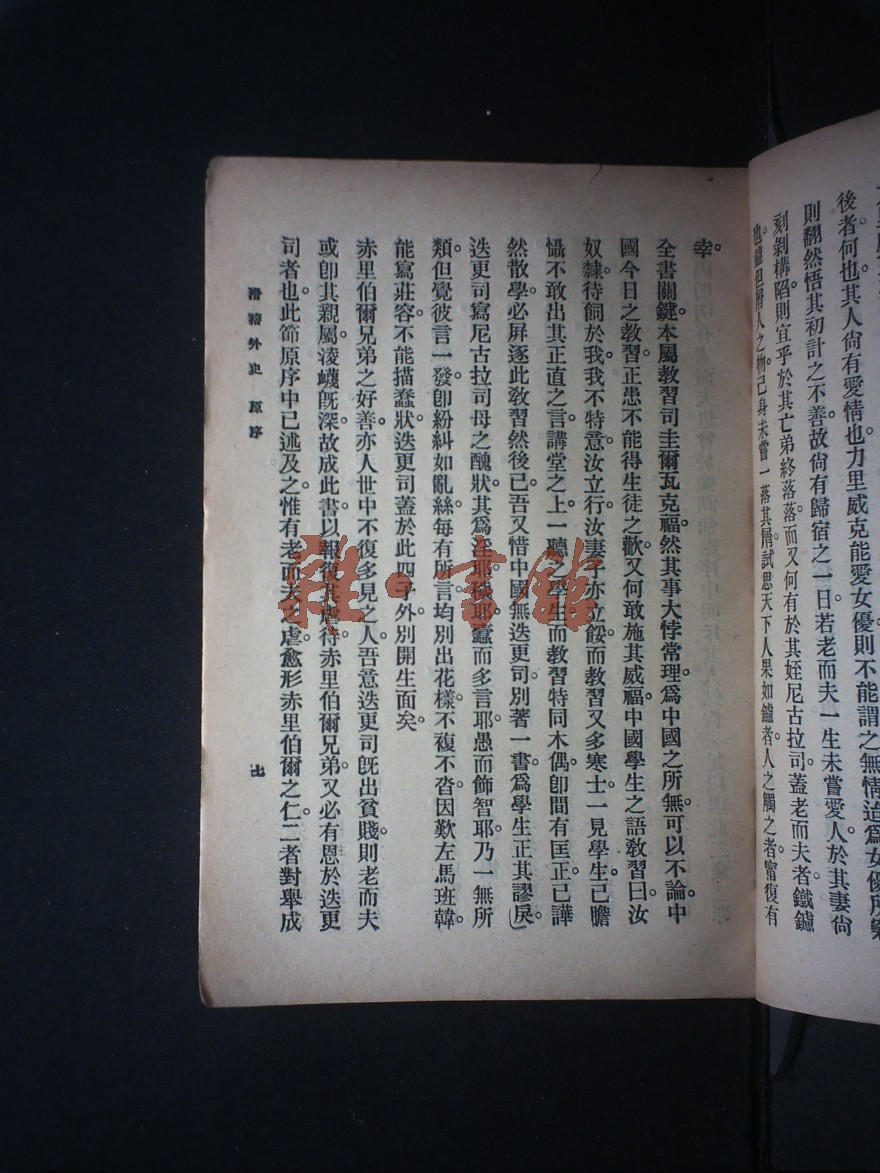 後者何也。其人尙有愛情也。力里威克能愛女優。則不能謂之無情。迨爲女優所棄
則翻然悟其初計之不善。故尙有歸宿之一日。若老而夫一生未嘗愛人。於其妻尙
刻剝構陷。則宜乎於其亡弟終落落。而又何有於其姪尼古拉司。蓋老而夫者鐵鑢
也。鑢但屑人之物。己身未嘗一落其屑。試思天下人果如鑢者。人之觸之者。甯復有
幸。
全書關鍵。本屬教習司圭爾瓦克福。然其事大悖常理。爲中國之所無。可以不論。中
國今日之教習。正患不能得生徒之歡。又何敢施其威福。中國學生之語教習曰。汝
奴隸待飼於我。我不特意。汝立行。汝妻子亦立餒。而教習又多寒士。一見學生。已膽
懾不敢出其正直之言。講堂之上。一聽之學生。而教習特同木偶。卽間有匡正。已譁
然散學。必屏逐此教習然後已。吾又惜中國無迭更司。別著一書。爲學生正其謬戾。
迭更司寫尼古拉司母之醜狀。其爲淫耶。穢耶。蠢而多言耶。愚而飾智耶。乃一無所
類。但覺彼言一發。卽紛糾如亂絲。每有所言。均別出花樣。不複不沓。因歎左馬班韓
能寫莊容。不能描蠢狀。迭更司蓋於此四子外。別開生面矣。
赤里伯爾兄弟之好善。亦人世中不復多見之人。吾意迭更司旣出貧賤。則老而夫
或卽其親屬。淩蠛旣深。故成此書。以報復其虐待。赤里伯爾兄弟。又必有恩於迭更
司者也。此節原序中已述及之。惟有老而夫之虐。愈形赤里伯爾之仁。二者對舉成
滑稽外史 原序
七
雜·書館